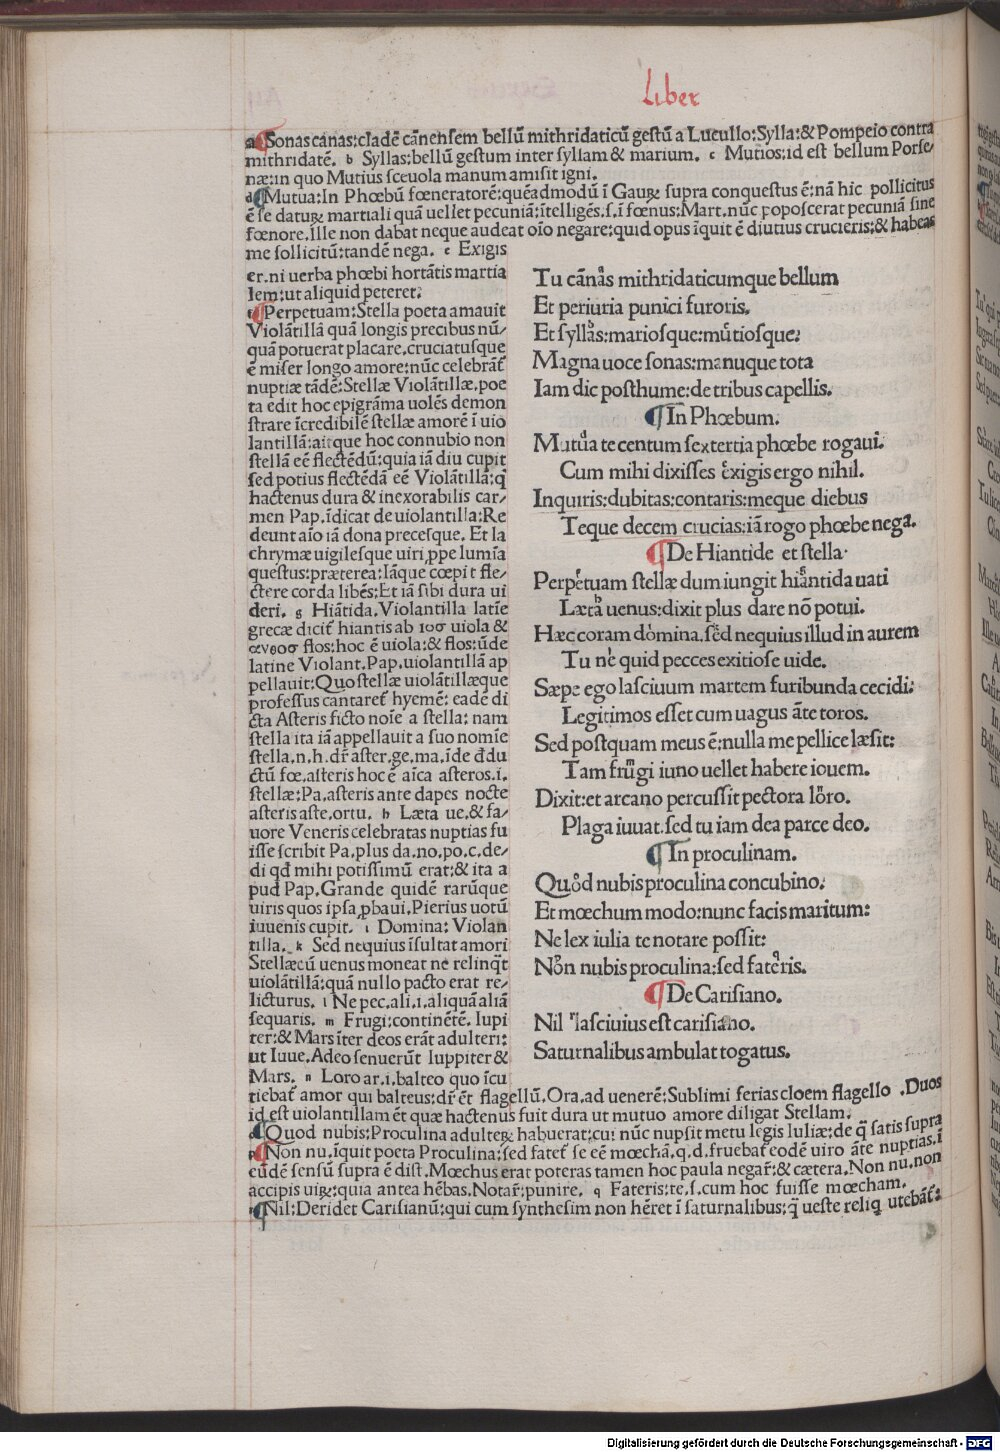 Liber
a ¶Sonas canas:cladē cānēnsem bellū mithridaticū gestū a Lucullo:Sylla:& Pompeio contra
mithridatē. b Syllas:bellū gestum inter syllam & marium. c Mutios:id est bellum Porse/
næ:in quo Mutius sceuola manum amisit igni.
d ¶Mutua:In Phœbū fœneratorē:quēadmodū ī Gauꝝ supra conquestus ē:nā hic pollicitus
ē se daturꝝ martiali quā uellet pecuniā:ītelligēs.s.ī fœnus:Mart.nūc poposcerat pecuniā sine
fœnore.ille non dabat neque audeat oīo negare:quid opus īquit ē diutius crucieris:& habeas
me sollicitū:tandē nega. e Exigis
er.ni uerba phœbi hortātis martia
lem:ut aliquid peteret.
f ¶Perpetuam:Stella poeta amauit
Violātillā quā longis precibus nū/
quā potuerat placare.cruciatusque
ē miser longo amore:nūc celebrāt̄
nuptiæ tādē:Stellæ Violātillæ.poe
ta edit hoc epigrāma uolēs demon
strare īcredibilē stellæ amorē ī uio
lantillā:aitque hoc connubio non
stellā eē flectēdū:quia iā diu cupit
sed potius flectēdā eē Violātillā:q̄
hactenus dura & inexorabilis car/
men Pap.īdicat de uiolantilla:Re
deunt aīo iā dona precesque. Et la
chrymæ uigilesque uiri ꝓpe lumīa
questus:præterea:Iāque cœpit fle/
ctere corda libēs:Et iā sibi dura ui
deri. g Hiātida.Violantilla latīe
grecæ dicit̄ hiantis ab ιοσ uiola &
ανθοσ flos:hoc ē uiola:& flos:ūde
latine Violant.Pap.uiolantillā ap
pellauit:Quo stellæ uiolātillæque
professus cantaret̄ hymē: eadē di
cta Asteris ficto noīe a stella: nam
stella ita iā appellauit a suo nomīe
stella.n.h.dr̄ aster.ge.ma.īde đdu
ctū fœ.asteris hoc ē aīca asteros.i.
stellæ:Pa.asteris ante dapes nocte
asteris aste.ortu. h Læta ue.& fa/
uore Veneris celebratas nuptias fu
isse scribit Pa.plus da.no.po.c.de/
di qđ mihi potissimū erat:& ita a
pud Pap.Grande quidē rarūque
uiris quos ipsa ꝓbaui.Pierius uotū
iuuenis cupit. i Domina: Violan
tilla. k Sed nequius īsultat amori
Stellæcū uenus moneat ne relinq̄t
uiolātillā:quā nullo pacto erat re/
licturus. l Ne pec.ali.i.aliquā aliā
sequaris. m Frugi:continētē. Iupi
ter:& Mars īter deos erāt adulteri:
ut Iuue.Adeo senuerūt Iuppiter &
Mars. n Loro ar.i.balteo quo īcu
tiebat̄ amor qui balteus:dr̄ ēt flagellū.Ora.ad uenerē:Sublimi ferias cloem flagello .Duos
id est uiolantillam ēt quæ hactenus fuit dura ut mutuo amore diligat Stellam.
o ¶Quod nubis:Proculina adulteꝝ habuerat:cui nūc nupsit metu legis Iuliæ:de q̄ satis supra
p ¶Non nu.īquit poeta Proculina:sed fatet̄ se eē mœchā.q.d.fruebat̄ eodē uiro āte nuptias.ī
eūdē sensū supra ē dist.Mœchus erat poteras tamen hoc paula negar̄:& cætera.Non nu.non
accipis uiꝝ:quia antea hēbas.Notar̄:punire. q Fateris:te.s.cum hoc fuisse mœcham.
r ¶Nil:Deridet Carisianū:qui cum synthesim non hēret ī saturnalibus:q̄ ueste reliq̄ utebāt̄:
Tu cānas mithridaticumque bellum
Et periuria punici furoris.
Et syllas:mariosque:mutiosque:
Magna uoce sonas:manuque tota
Iam dic posthume:de tribus capellis.
¶In Phœbum.
Mutua te centum sextertia phœbe rogaui.
Cum mihi dixisses exigis ergo nihil.
Inquiris:dubitas:contaris:meque diebus
Teque decem crucias:iā rogo phœbe nega.
¶De Hiantide et stella.
Perpetuam stellæ dum iungit hiantida uati
Læta uenus:dixit plus dare nō potui.
Hæc coram domina.sed nequius illud in aurem
Tu ne quid pecces exitiose uide.
Sæpe ego lasciuum martem furibunda cecidi:
Legitimos esset cum uagus āte toros.
Sed postquam meus ē:nulla me pellice læsit:
Tam frugi iuno uellet habere iouem.
Dixit:et arcano percussit pectora loro.
Plaga iuuat.sed tu iam dea parce deo.
¶In proculinam.
Quod nubis proculina concubino:
Et mœchum modo:nunc facis maritum:
Ne lex iulia te notare possit:
Non nubis proculina:sed fateris.
¶De Carisiano.
Nil lasciuius est carisiano.
Saturnalibus ambulat togatus.
Digitalisierung gefördert durch die Deutsche Forschungsgemeinschaft - DFG